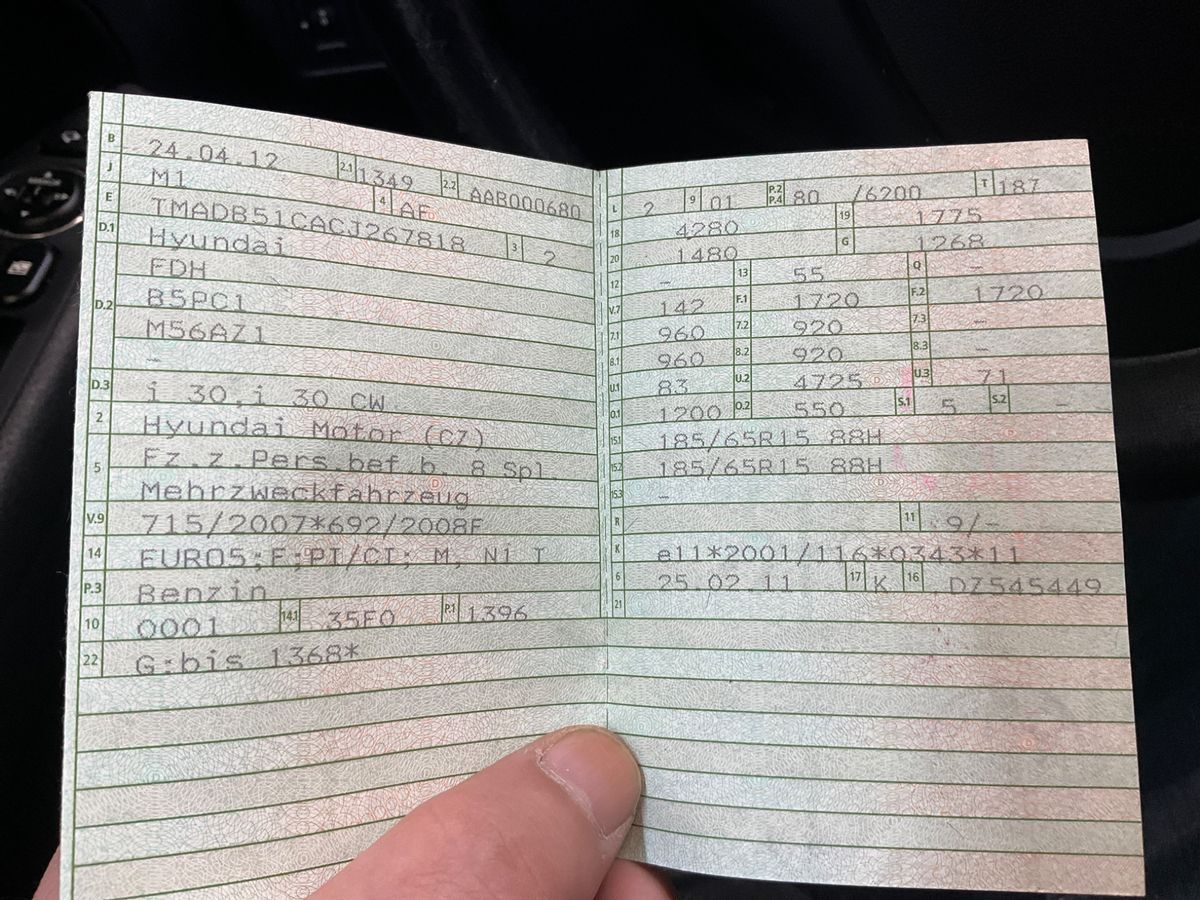 B 24.04.12 2.1 1349 2.2 AAR000680
J M1 4 AF
E TMADB51CACJ267818 3 2
D.1 Hyundai
FDH
D.2 B5PC1
M56AZ1
-
D.3 i 30,i 30 CW
2 Hyundai Motor (CZ)
5 Fz.z.Pers.bef.b. 8 Spl.
Mehrzweckfahrzeug
V.9 715/2007*692/2008F
14 EURO5;F;PI/CI; M, N1 I
P.3 Benzin
10 0001 14.1 35F0 P.1 1396
22 G:bis 1368*
L 2 9 01 P.2 P.4 80 /6200 T 187
18 4280 19 1775
20 1480 G 1268
12 - 13 55 Q -
V.7 142 F.1 1720 F.2 1720
7.1 960 7.2 920 7.3 -
8.1 960 8.2 920 8.3 -
U.1 83 U.2 4725 U.3 71
O.1 1200 O.2 550 S.1 5 S.2 -
15.1 185/65R15 88H
15.2 185/65R15 88H
15.3 -
R 11 9/-
K e11*2001/116*0343*11
6 25.02.11 17 K 16 DZ545449
21